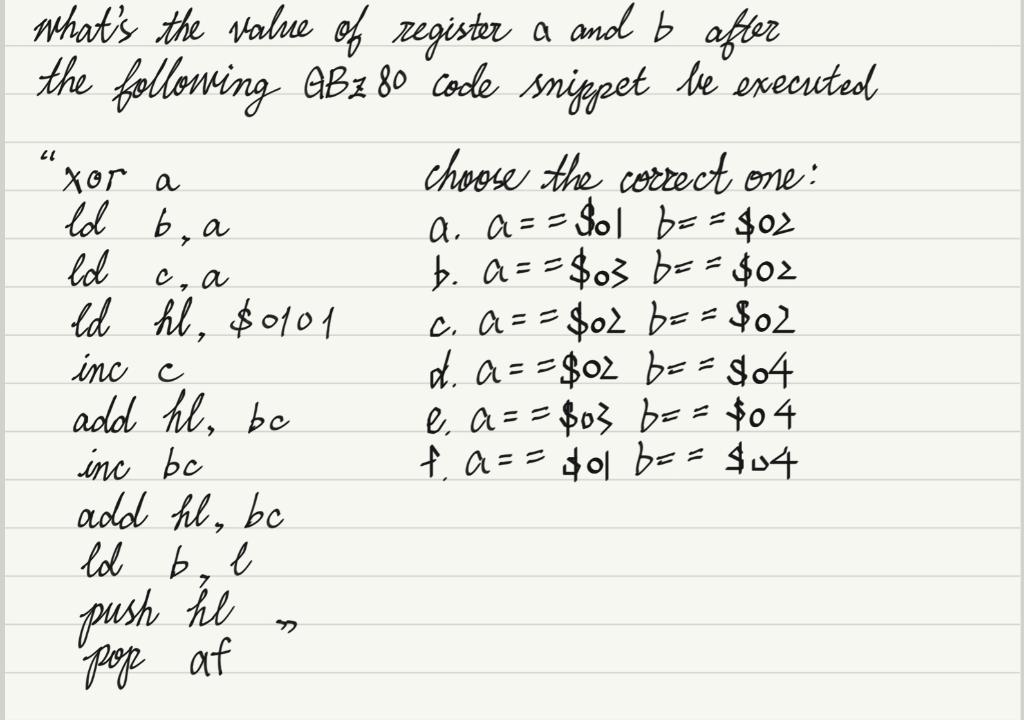 what's the value of register a and b after
the following GBz80 code snippet be executed
"xor a
ld b,a
ld c,a
ld hl, $0101
inc c
add hl, bc
inc bc
add hl, bc
ld b, l
push hl "
pop af
choose the correct one:
a. a==$01 b==$02
b. a==$03 b==$02
c. a==$02 b==$02
d. a==$02 b==$04
e. a==$03 b==$04
f. a==$01 b==$04